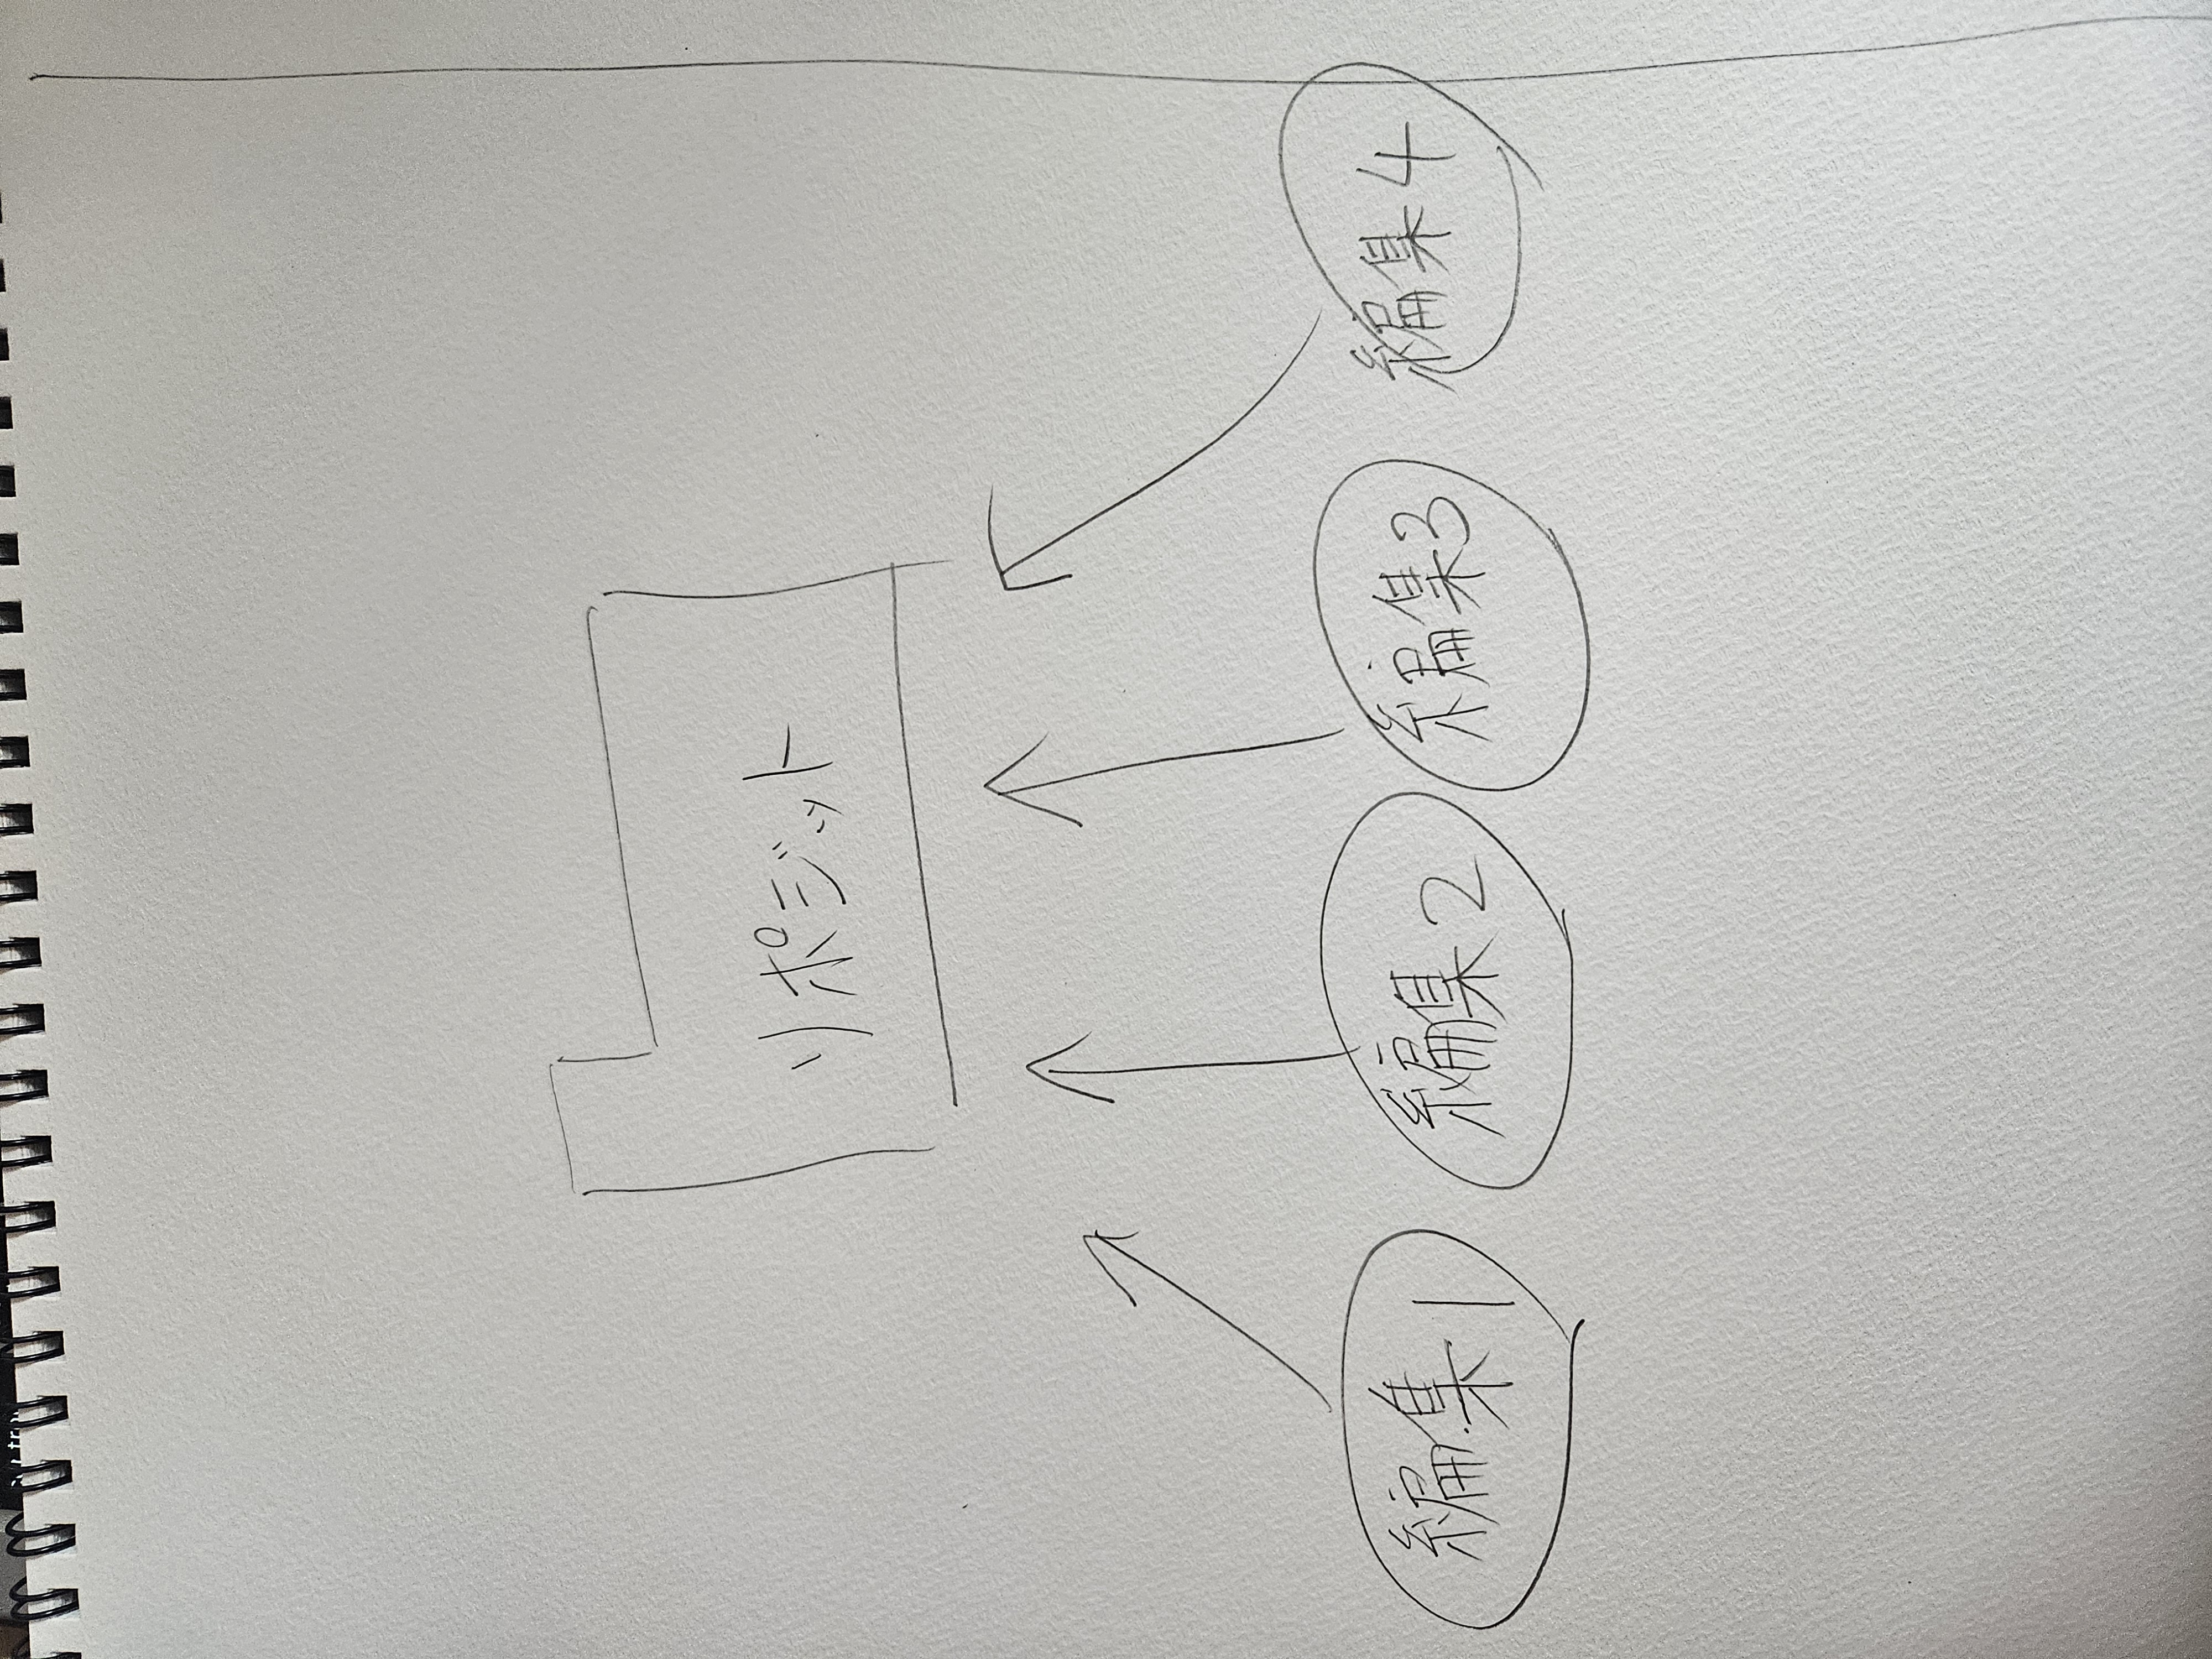 リポジット
編集1
編集2
編集3
編集4